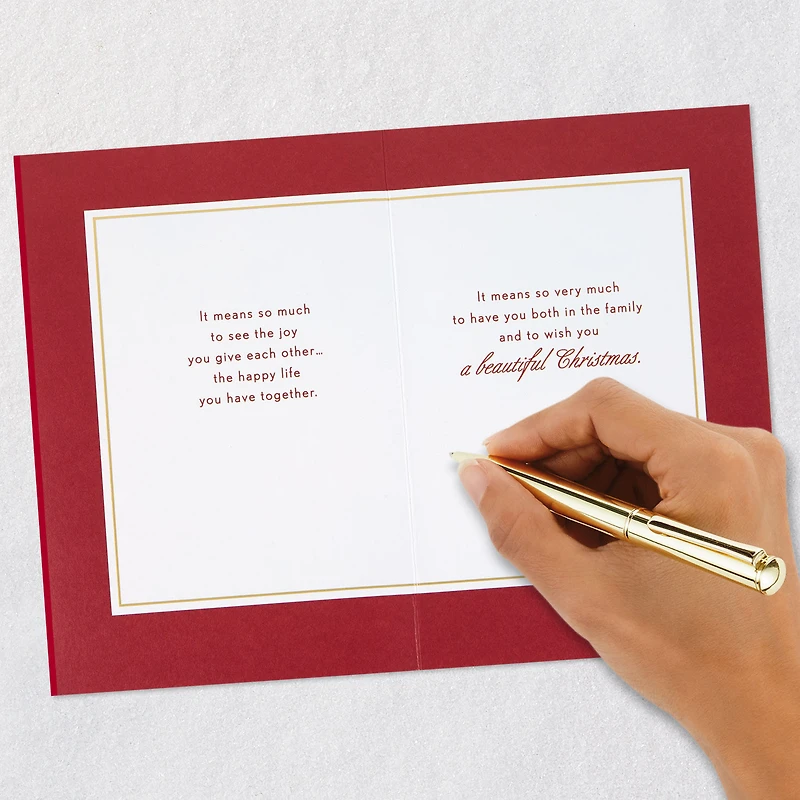 It means so much
to see the joy
you give each other...
the happy life
you have together.
It means so very much
to have you both in the family
and to wish you
a beautiful Christmas.